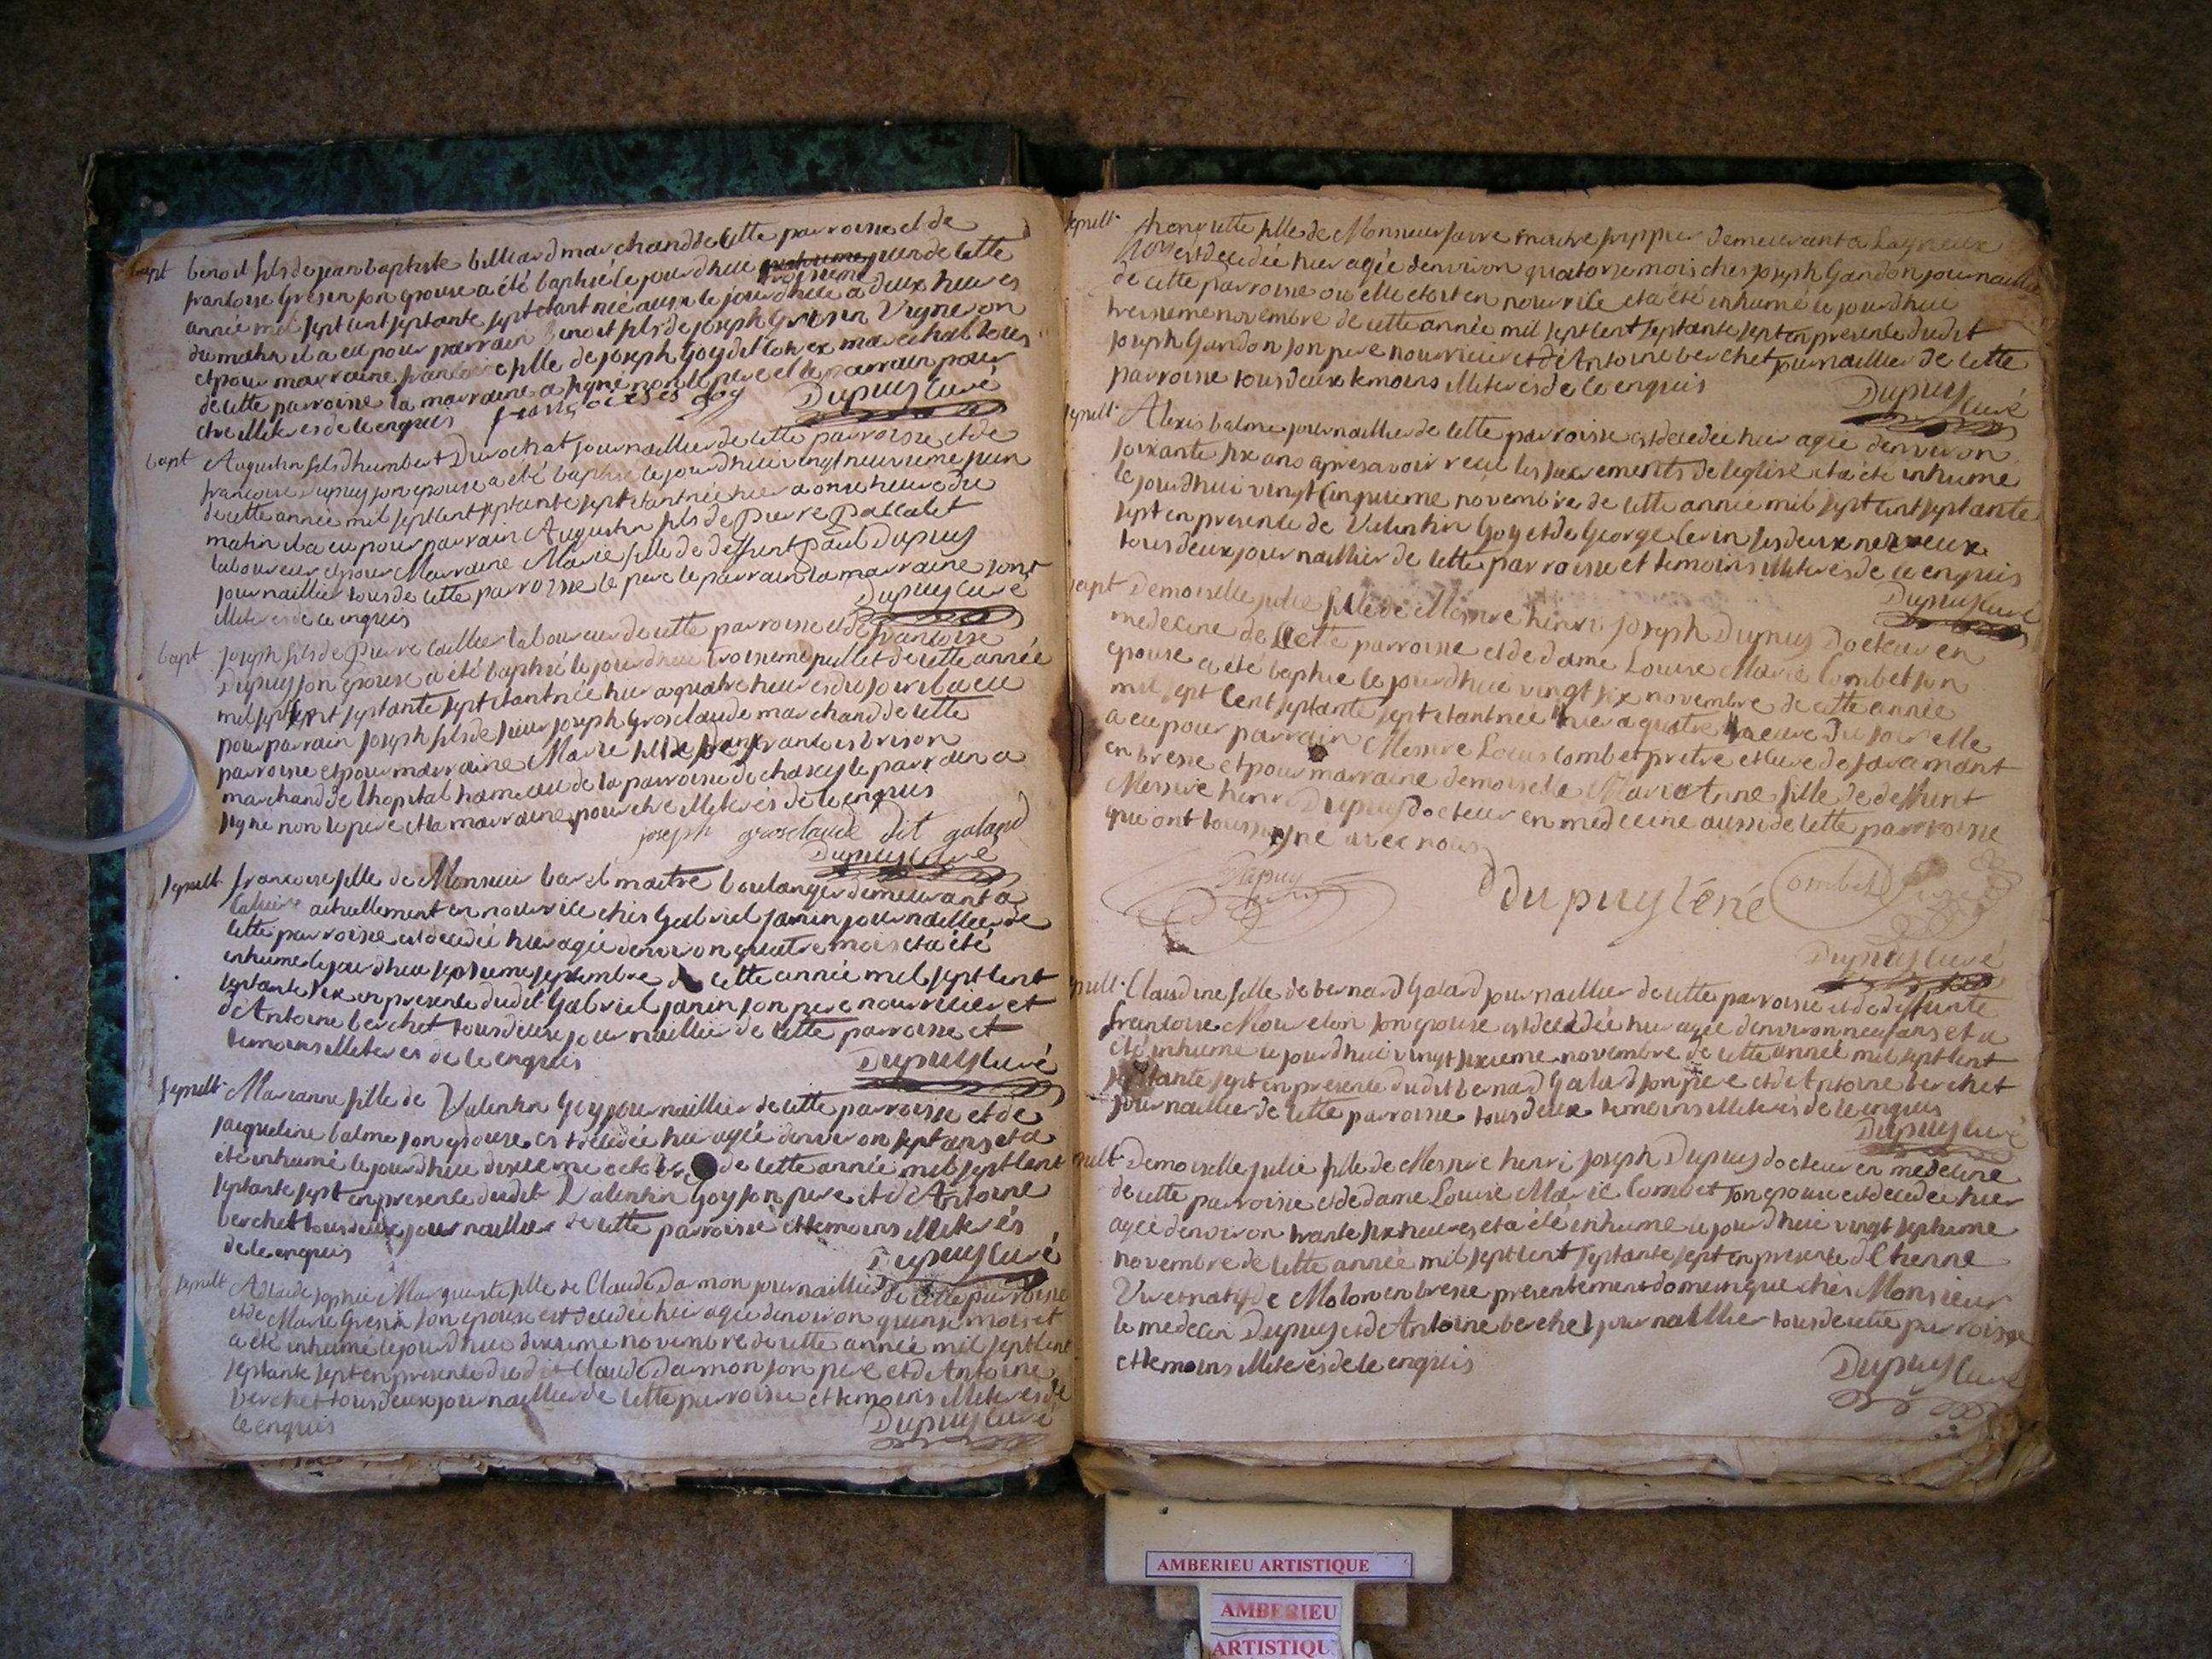 bapt benoit fils de jean baptiste billiard marchand de cette parroisse et de
francoise Gresin son epouse a été baptisé le jourdhui troisieme juin de cette
année mil sept cent septante sept etant née aussi le jourdhui a deux heures
du matin il a eu pour parrain benoit fils de joseph Gresin Vigneron
et pour marraine francoise fille de joseph Goy marechal tous
de cette parroisse la marraine a signé non le pere et le parrain pour
etre illiterés de ce enquis francoises goy Dupuy curé
bapt Augustin fils dhumbert Durochat journaillier de cette parroisse et de
francoise Dupuy son epouse a été baptisé le jourdhui vingt neuvieme juin
de cette année mil sept cent septante sept etant née hier a onse heure du
matin il a eu pour parrain Augustin fils de pierre pallalet
laboureur et pour Marraine Marie fille de deffunt paul Dupuy
journaillier tous de cette parroisse le pere le parrain la marraine sont
illiterés de ce enquis Dupuy curé
bapt joseph fils de pierre caillier laboureur de cette parroisse et de francoise
Dupuy son epouse a été baptisé le jourdhui troisieme juillet de cette année
mil sept cent septante sept etant née hier a quatre heures du soir il a eu
pour parrain joseph fils de sieur joseph Grosclaude marchand de cette
parroisse et pour marraine Marie fille de francois brison
marchand de lhopital hameau de la parroisse de chasey le parrain a
signé non le pere et la marraine pour etre illiterés de ce enquis
joseph grosclaude dit galand
Dupuy curé
sepult francoise fille de Monsieur barel maitre boulanger demeurant a
actuellement en nourrice chés Gabriel janin journaillier de
cette parroisse est decedée hier agée denviron quatre mois et a été
inhumé le jourdhui septieme septembre de cette année mil sept cent
septante en presence dudit Gabriel janin son pere nourricier et
d'Antoine berchet tous deux journaillier de cette parroisse et
temoins illiterés de ce enquis Dupuy curé
sepult Marianne fille de Valentin Goy journaillier de cette parroisse et de
jacqueline balme son epouse est decedée hier agée denviron sept ans et a
été inhumé le jourdhui dixieme octobre de cette année mil sept cent
septante sept en presence dudit Valentin Goy son pere et d'Antoine
berchet tous deux journaillier de cette parroisse et temoins illiterés
de ce enquis Dupuy curé
sepult Adlaide sophie Marguerite fille de Claude Damon journaillier de cette parroisse
et de Marie Gresin son epouse est decedée hier agée denviron quinse mois et
a été inhumé le jourdhui dixieme novembre de cette année mil sept cent
septante sept en presence dudit Claude Damon son pere et d'Antoine
berchet tous deux journaillier de cette parroisse et temoins illiterés de
ce enquis Dupuy curé
sepult henriette fille de Monsieur maitre frippier demeurant a
est decedée hier agée denviron quatorse mois ches joseph Gandon journaillier
de cette parroisse ou elle etoit en nourrice et a été inhumé le jourdhui
treisieme novembre de cette année mil sept cent septante sept en presence dudit
joseph Gandon son pere nourricier et d'Antoine berchet journaillier de cette
parroisse tous deux temoins illiterés de ce enquis Dupuy curé
sepult Alexis balme journaillier de cette parroisse est decedée hier agée denviron
soixante six ans apres avoir reçu les sacrements de leglise et a été inhumé
le jourdhui vingt cinquieme novembre de cette année mil sept cent septante
sept en presence de Valentin Goy et de George Cerin ses deux neveux
tous deux journaillier de cette parroisse et temoins illiterés de ce enquis
Dupuy curé
bapt Demoiselle julie fille de Messire henri joseph Dupuy Docteur en
medecine de cette parroisse et de dame Louise Marie Combet son
epouse a été baptisé le jourdhui vingt six novembre de cette année
mil sept cent septante sept etant née hier a quatre heure du soir elle
a eu pour parrain Messire Louis Combet prêtre et curé de jaramant
en bresse et pour marraine demoiselle Marie Anne fille de deffunt
Messire henri Dupuy docteur en medecine aussi de cette parroisse
qui ont tous signé avec nous
Dupuy dupuy Combet
Dupuy curé
sepult Claudine fille de bernard Galard journaillier de cette parroisse et de deffunte
francoise Mourelon son epouse est decedée hier agée denviron neuf ans et a
été inhumé le jourdhui vingt sixieme novembre de cette année mil sept cent
septante sept en presence dudit bernard Galard son pere et d'Antoine berchet
journaillier de cette parroisse tous deux temoins illiterés de ce enquis
Dupuy curé
sepult Demoiselle julie fille de Messire henri joseph Dupuy docteur en medecine
de cette parroisse et de dame Louise Marie Combet son epouse est decedée hier
agée denviron trante six heures et a été inhumé le jourdhui vingt septieme
novembre de cette année mil sept cent septante sept en presence d'Etienne
natif de Molon en bresse presentement domestique chés Monsieur
le medecin Dupuy et d'Antoine berchet journaillier tous de cette parroisse
et temoins illiterés de ce enquis Dupuy curé
AMBERIEU ARTISTIQUE
AMBERIEU
ARTISTIQU